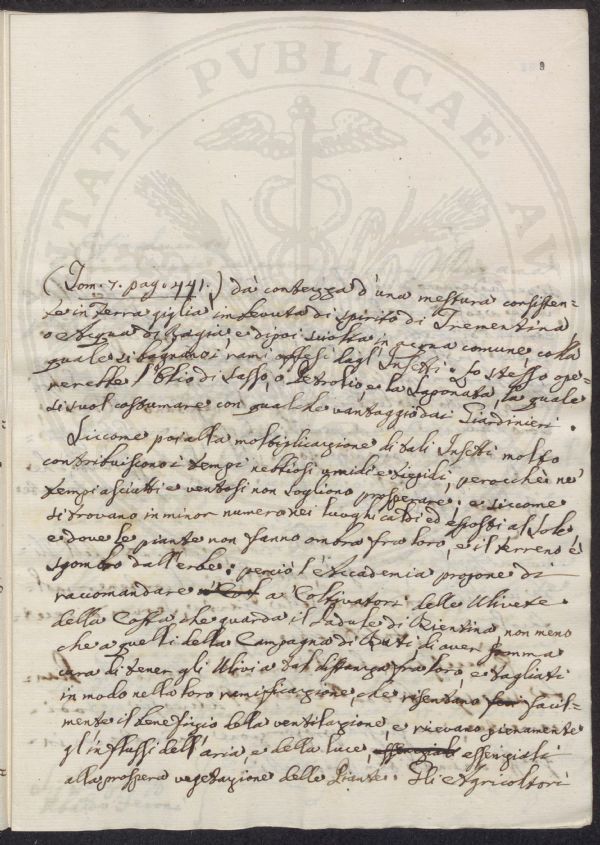 9
(Tom. 7. pag. 441.) dà contezza d'una mestura consisten-
te in Terra giglia intenuta di spirito di Trementina
o Acqua di Ragia, e dipoi sciolta in acqua comune colla
quale si bagnano i rami offesi dagl'Insetti. Lo stesso ope-
rerebbe l'Olio di Sasso, o Petrolio, e la Saponata, la quale
si suol costumare con qualche vantaggio dai Giardinieri.
Siccome poi alla moltiplicazione di tali Insetti molto
contribuiscono i tempi nebbiosi umidi e tiepidi, perocchè ne'
tempi asciutti e ventosi non sogliono prosperare; e siccome
si trovano in minor numero nei luoghi caldi ed esposti al Sole
e dove le piante non fanno ombra fra loro, e il terreno è
sgombro dall'erbe; perciò l'Accademia propone di
raccomandare a Coltivatori delle Ulivete
della Costa, che guarda il Padule di Bientina non meno
che a quelli della Campagna di Buti di aver somma
cura di tener gli Ulivi a tal distanza fra loro, e tagliati
in modo nella loro ramificazione, che risentano facil-
mente il benefizio della ventilazione, e ricevano pienamente
gl'influssi dell'aria, e della luce, essenziali
alla prospera vegetazione delle Piante. Gli Agricoltori
VTILITATI PVBLICAE